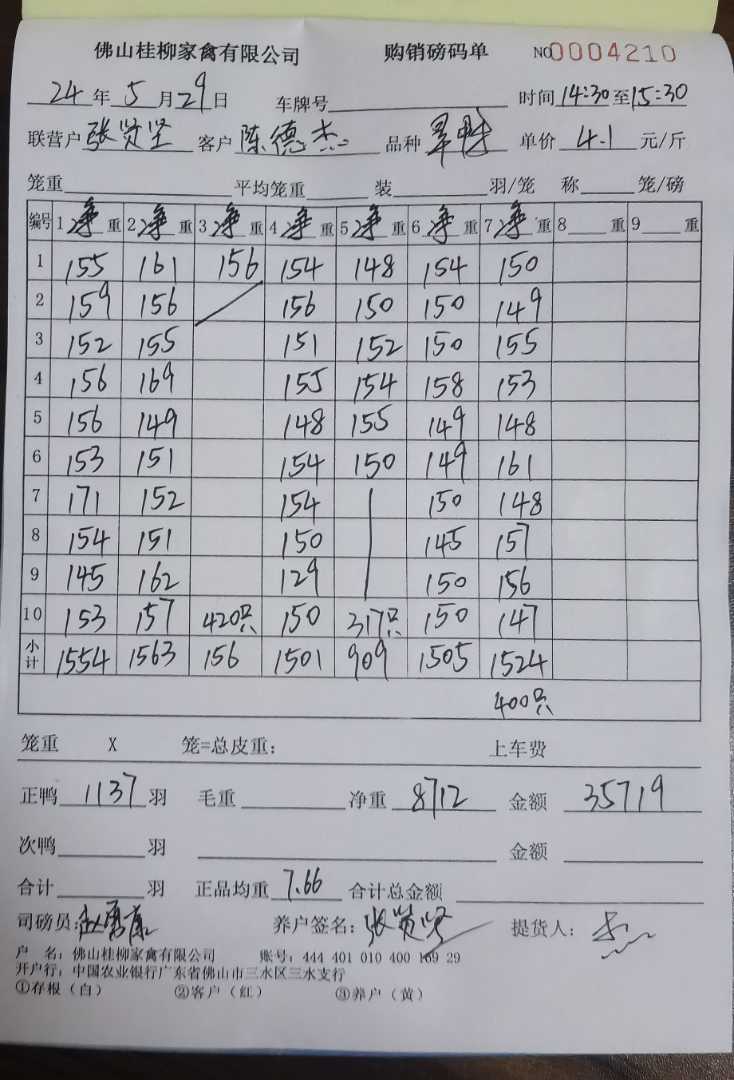 佛山桂柳家禽有限公司 购销磅码单 NO 0004210
24 年 5 月 29 日 车牌号 时间 14:30 至 15:30
联营户 张贤坚 客户 陈德杰 品种 单价 4.1 元/斤
笼重 平均笼重 装 羽/笼 称 笼/磅
编号 1 净 重 2 净 重 3 净 重 4 净 重 5 净 重 6 净 重 7 净 重 8 重 9 重
1 155 161 156 154 148 154 150
2 159 156 156 150 150 149
3 152 155 151 152 150 155
4 156 169 155 154 158 153
5 156 149 148 155 149 148
6 153 151 154 150 149 161
7 171 152 154 150 148
8 154 151 150 145 157
9 145 162 129 150 156
10 153 157 420只 150 317只 150 147
小计 1554 1563 156 1501 909 1505 1524
400只
笼重 X 笼=总皮重: 上车费
正鸭 1137 羽 毛重 净重 8712 金额 35719
次鸭 羽 金额
合计 羽 正品均重 7.66 合计总金额
司磅员: 养户签名: 张贤坚 提货人:
户 名: 佛山桂柳家禽有限公司 账号: 444 401 010 400 169 29
开户行: 中国农业银行广东省佛山市三水区三水支行
①存根(白) ②客户(红) ③养户(黄)